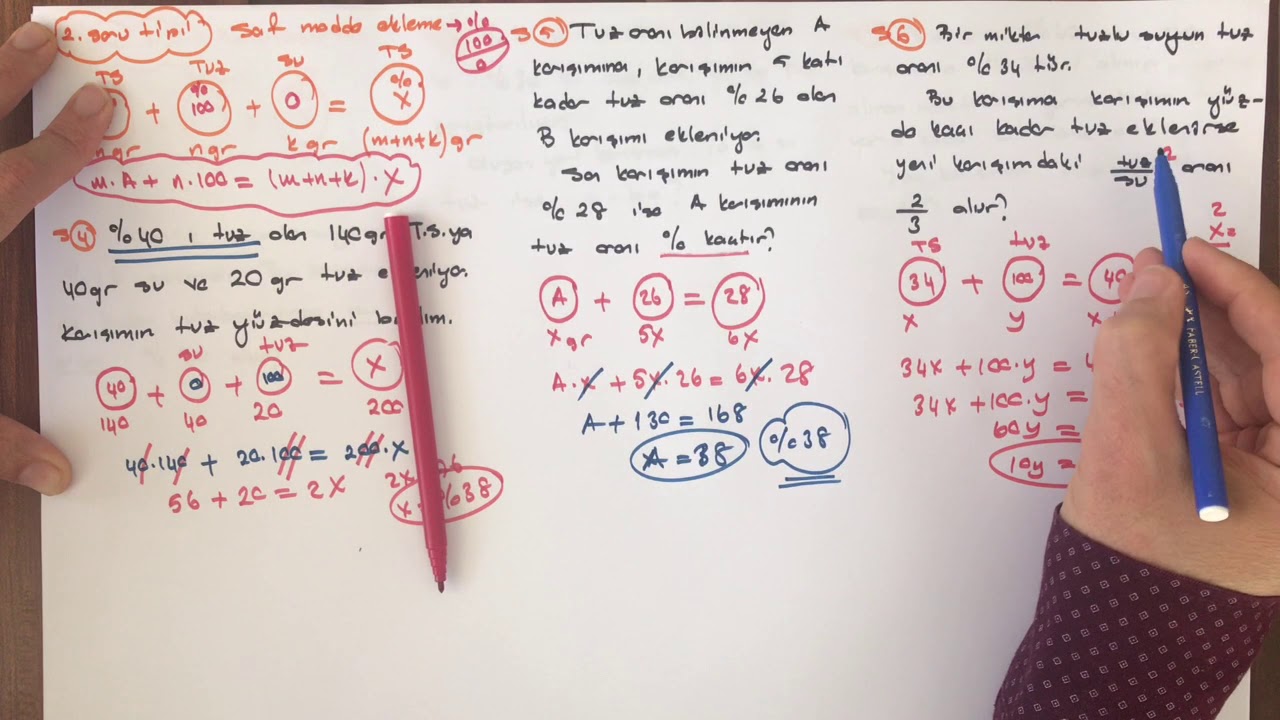 2. soru tipi saf madde ekleme → %
100
0
TS Tuz su TS
+ % 100 + 0 = % X
n gr k gr (m+n+k) gr
m.A + n.100 = (m+n+k).X
S4 %40 ı tuz olan 140gr T.S.ya
40gr su ve 20 gr tuz
karışımın tuz yüzdesini
su tuz
40 + 0 + 100 = X
140 40 20 200
40.140 + 20.100 = 200.X
56 + 20 = 2X
2X
%38
S5 Tuz oranı bilinmeyen A
karışımına, karışımın 5 katı
kadar tuz oranı %26 olan
B karışımı ekleniyor.
Son karışımın tuz oranı
%28 ise A karışımının
tuz oranı % kaçtır?
A + 26 = 28
X gr 5X 6X
A.X + 5X.26 = 6X.28
A + 130 = 168
A = 38 %38
S6 Bir miktar tuzlu suyun tuz
oranı %34 tür.
Bu karışıma karışımın yüz-
de kaçı kadar tuz eklenirse
yeni karışımdaki tuz/su oranı
2/3 olur?
2
X=
TS tuz
34 + 100 = 40
X y
34X + 100.y =
34X + 100.y =
60y =
10y =
FABER-CASTELL